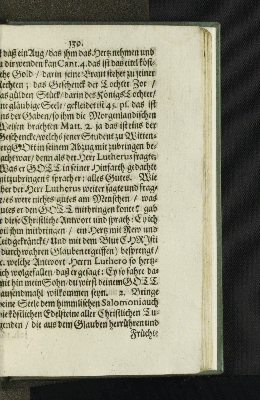 130.
daß ein Aug/ das ihm das Hertz nehmen und
dir wenden kan Cant. 4. das ist das eitel köst-
che Gold/ darin seine Braut stehet zu seiner
echten; das Geschenck der Tochter Zor/
as gülden Stück/ darin des Königs Tochter/
ne gläubige Seele/ gekleidet ist 45. ps. das ist
ns der Gaben/ so ihm die Morgenländischen
Weisen brachten Matt. 2. ja das ist eins der
Geschencke/ welchs jener Student zu Witten-
erg GOtt in seinem Abzug mit zubringen be-
acht war/ denn als der Herr Lutherus fragte/
Was er GOTT in seiner Hinfarth gedächte
mitzubringen? sprach er: alles Gutes. Wie
ber der Herr Lutherus weiter sagte und frag-
e/ es were nichts gutes am Menschen/ was
utes er den GOTT mitbringen konte? gab
diese Christliche Antwort und sprach: Ey ich
wil ihm mitbringen/ ein Hertz mit Rew und
Leid gekränckt/ Und mit dem Blut CHRISTI
(durch wahren Glauben ergriffen) besprengt/
c. welche Antwort Herrn Luthero so hertz-
ich wolgefallen/ daß er gesagt: Ey so fahre da-
mit hin mein Sohn/ du wirst deinem GOTT
ausendmahl willkommen seyn. 2. Bringe
eine Seele dem himmlischen Salomoni auch
ie köstlichen Edelsteine aller Christlichen Tu-
genden/ die aus dem Glauben herrühren und
Früchte